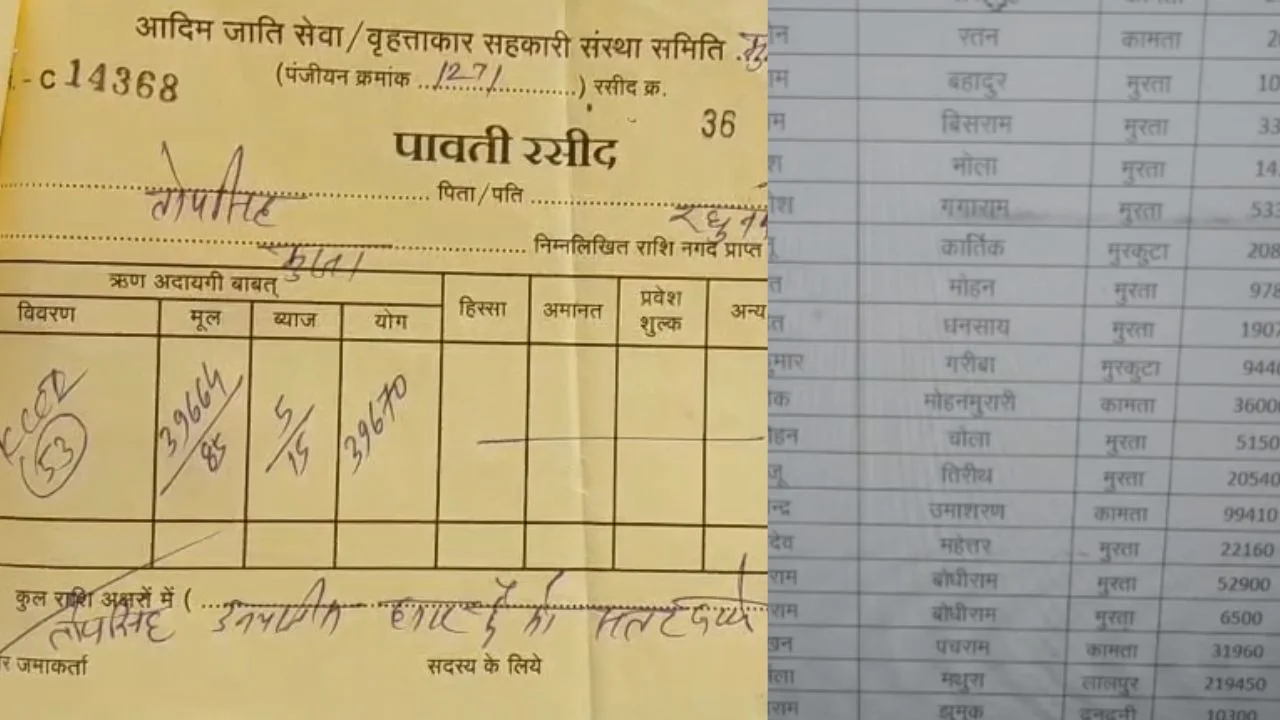 आदिम जाति सेवा/वृहत्ताकार सहकारी संस्था समिति
- C 14368 (पंजीयन क्रमांक 1271) रसीद क्र.
36
पावती रसीद
तोपसिंह पिता/पति
मुरता निम्नलिखित राशि नगद प्राप्त
ऋण अदायगी बाबत् हिस्सा अमानत प्रवेश शुल्क अन्य
विवरण मूल ब्याज योग
53 39664/85 5/15 39670
कुल राशि अक्षरों में (
तोपसिंह
जमाकर्ता सदस्य के लिये
रतन कामता
बहादुर मुरता 10
बिसराम मुरता 33
भोला मुरता 14
गंगाराम मुरता 533
कार्तिक मुरकुटा 208
मोहन मुरता 978
धनसाय मुरता 1907
गरीबा मुरकुटा 944
मोहनमुरारी कामता 3600
चोला मुरता 5150
तिरीथ मुरता 20540
उमाशरण कामता 99410
महेत्तर मुरता 22160
राम बोधीराम मुरता 52900
राम बोधीराम मुरता 6500
पंचराम कामता 31960
मथुरा लालपुर 219450
राम झुमुक दनदनी 10300